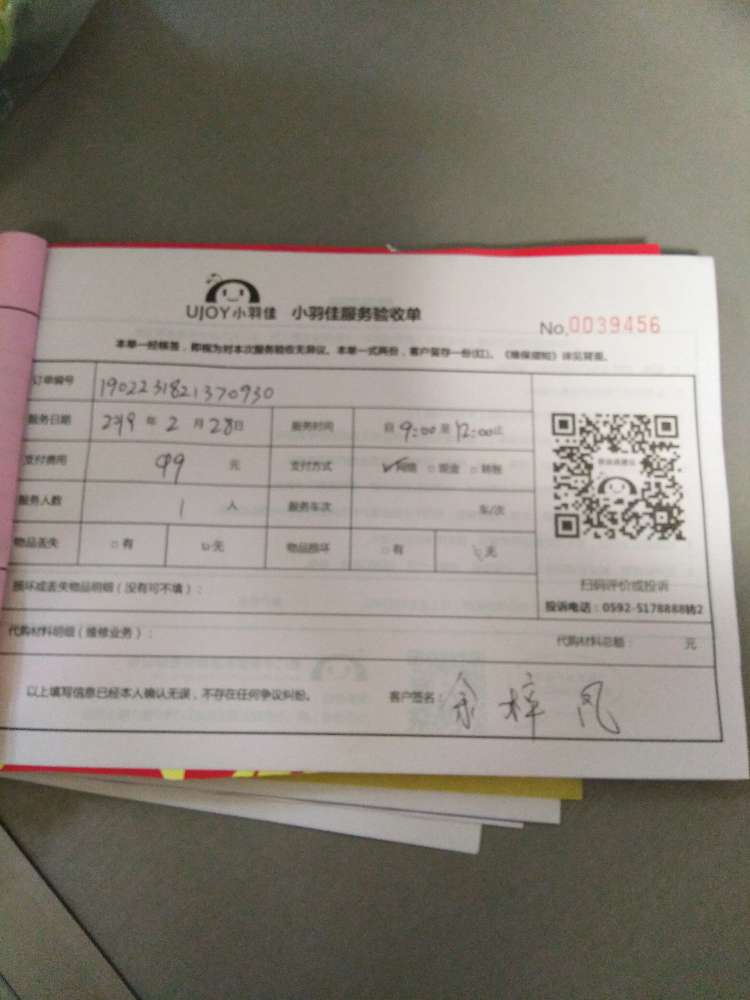 UJOY小羽佳 小羽佳服务验收单
No.0039456
本单一经核签，即视为对本次服务验收无异议。本单一式两份，客户留存一份(红)。《维保须知》详见背面。
订单编号 1902231821370930
服务日期 2019 年 2 月 28日 服务时间 自 9:00 至 12:00止
支付费用 99 元 支付方式 ✓网络 □现金 □转账
服务人数 1 人 服务车次 车/次
物品丢失 □有 ☑无 物品损坏 □有 ☑无
扫码评价或投诉
投诉电话：0592-5178888转2
损坏或丢失物品明细（没有可不填）：
代购材料明细（维修业务）： 代购材料总额： 元
以上填写信息已经本人确认无误，不存在任何争议纠纷。 客户签名：余梓凤